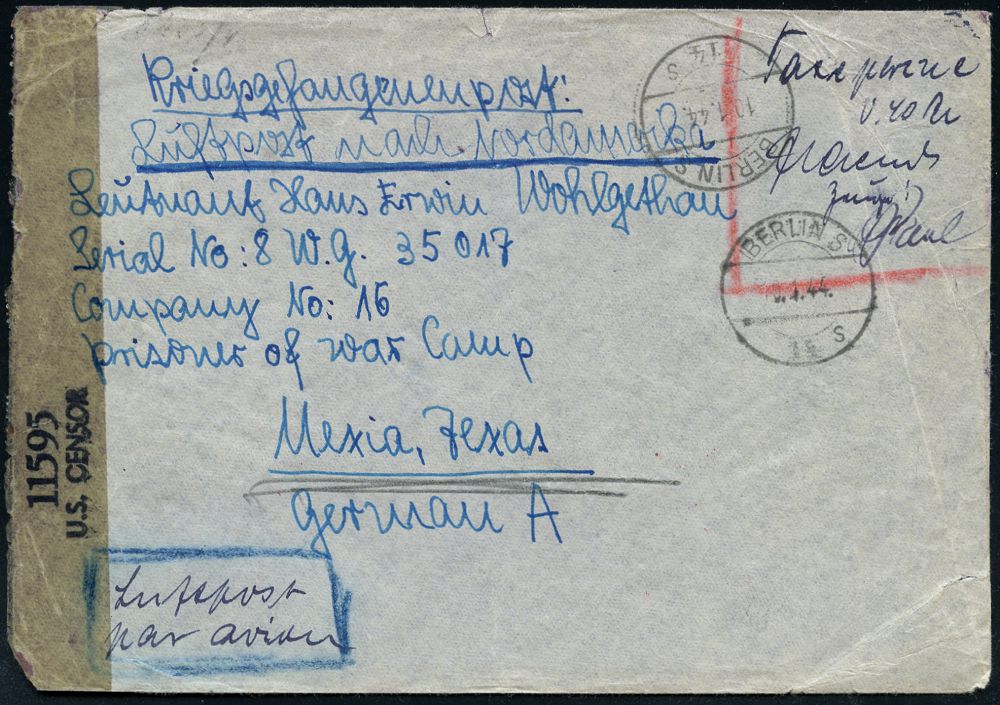 Kriegsgefangenenpost:
Luftpost nach Nordamerika
Leutnant Hans Erwin Wohlgethan
Serial No: 8 W.G. 35017
Company No: 16
prisoner of war Camp
Mexia, Texas
German A
Luftpost
par avion
11595
U.S. CENSOR
BERLIN S
14
BERLIN SW
.1.44.
s